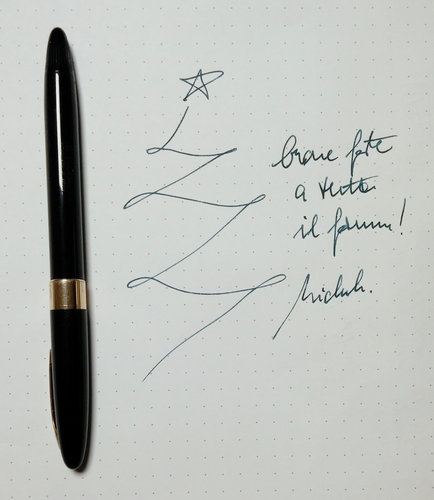 buone feste
a tutto
il forum!
Michele.